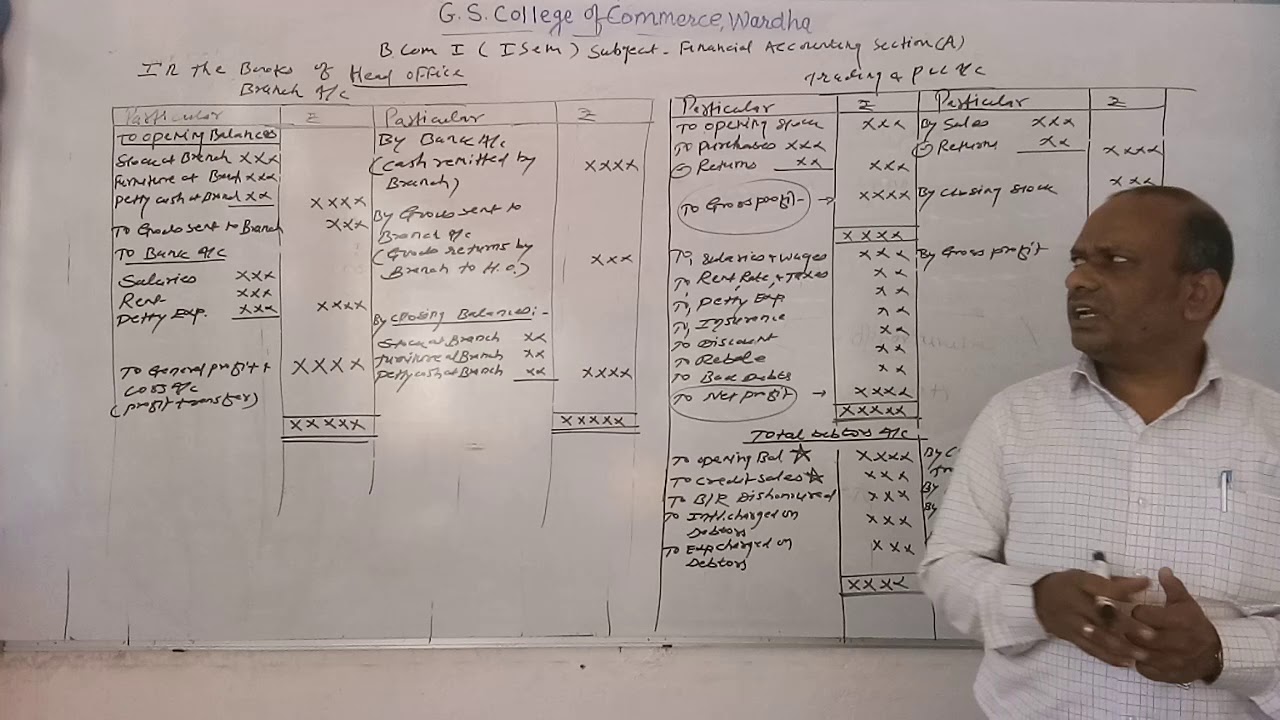 G. S. College of Commerce, Wardha
B Com I ( I Sem ) Subject - Financial Accounting Section (A)
In The Books of Head office
Branch A/c
Particular ₹ Particular ₹
To opening Balances
Stock at Branch xxx
Furniture at Branch xxx
Petty cash at Branch xx xxxx
To Goods sent to Branch xxx
To Bank A/c
Salaries xxx
Rent xxx
Petty Exp. xxx xxxx
To General profit +
Loss A/c xxxx
(profit transfer)
xxxxx
By Bank A/c
(cash remitted by xxxx
Branch)
By Goods sent to
Branch A/c
(Goods returns by xxx
Branch to H.O.)
By closing Balances:-
Stock at Branch xx
Furniture at Branch xx
Petty cash at Branch xx xxxx
xxxxx
Trading & P&L A/c
Particular ₹ Particular ₹
To opening Stock xxx
To purchases xxx
(-) Returns xx xxx
To Gross profit - → xxxx
xxxx
To, Salaries + wages xxx
To Rent, Rate, + Taxes xx
To, Petty Exp xx
To, Insurance xx
To Discount xx
To Rebate xx
To Bad Debts xx
To Net profit → xxxx
xxxxx
By Sales xxx
(-) Returns xx xxxx
By Closing Stock xxx
By Gross profit
Total Debtors A/c
To opening Bal ☆ xxxx
To Credit Sales ☆ xxx
To B/R Dishonoured xxx
To Intt. charged on xxx
Debtors
To Exp charged on xxx
Debtors
xxxx
By
By
By